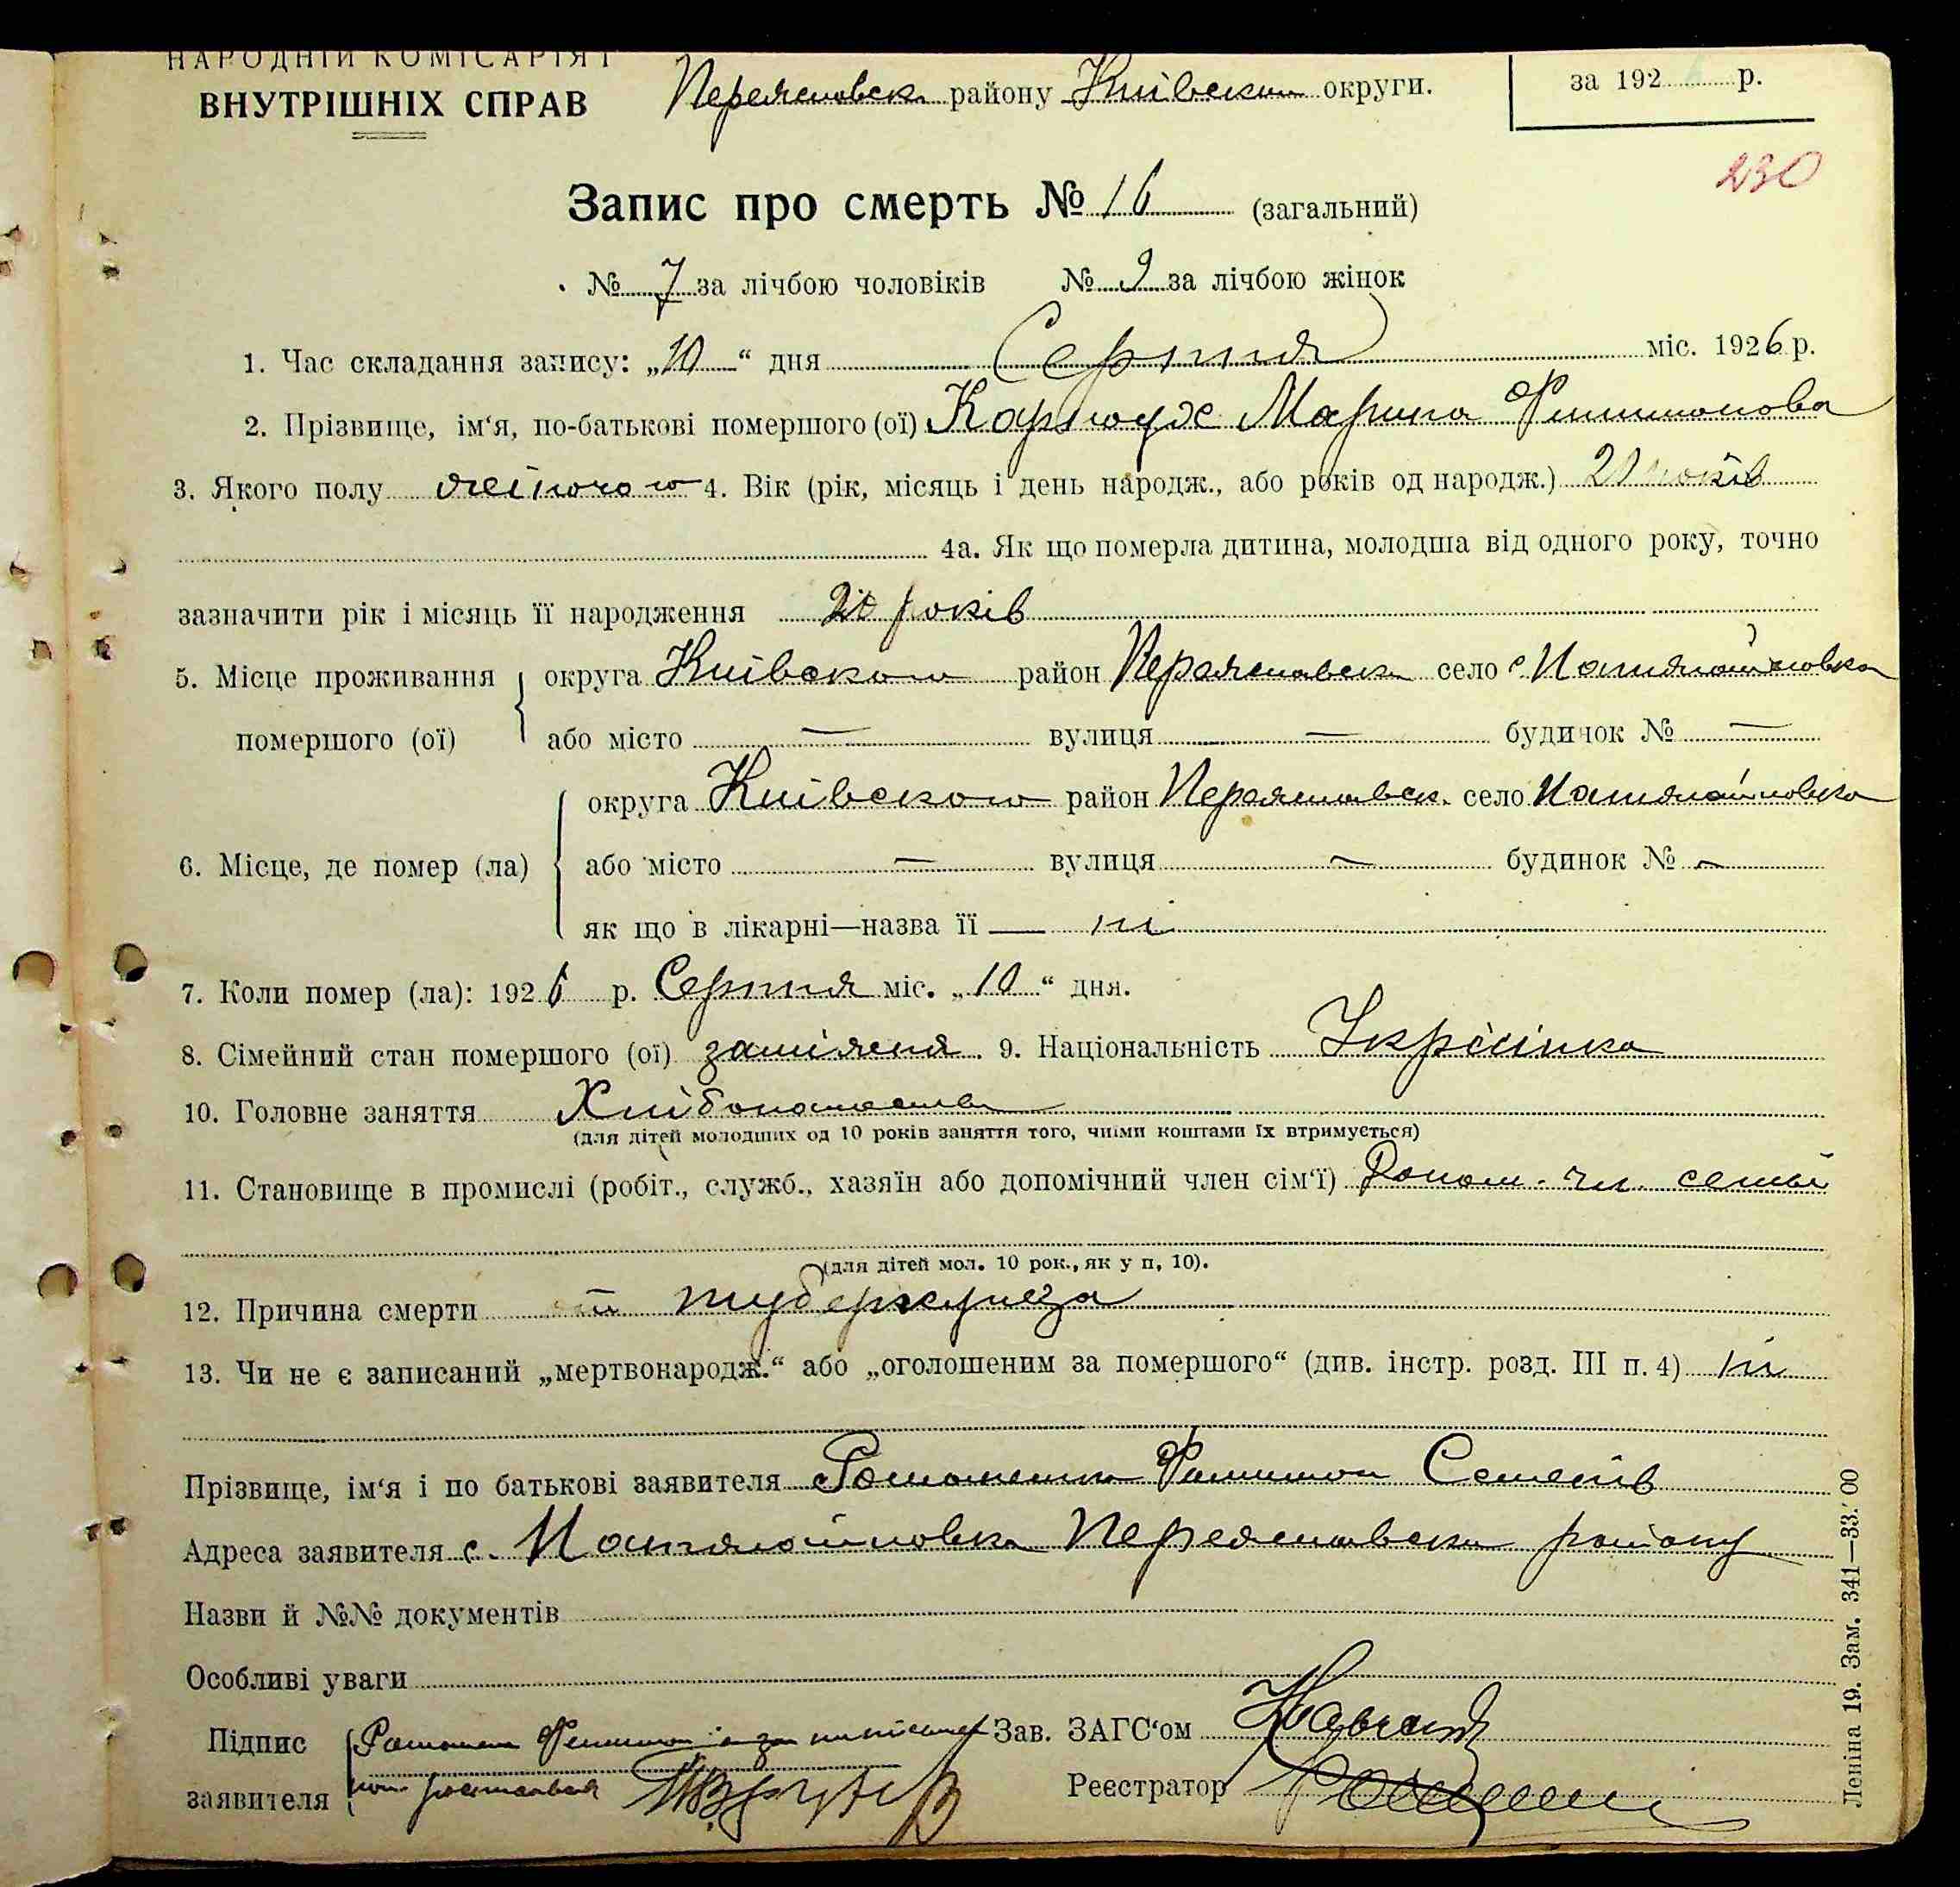 НАРОДНІЙ КОМІСАРІЯТ
ВНУТРІШНІХ СПРАВ
Переяславськ району Київською округи.
за 192 р.
230
Запис про смерть № 16 (загальний)
№ 7 за лічбою чоловіків № 9 за лічбою жінок
1. Час складання запису: „10“ дня Серпня міс. 1926 р.
2. Прізвище, ім‘я, по-батькові помершого (ої) Марина Филимонова
3. Якого полу жіночого 4. Вік (рік, місяць і день народж., або років од народж.) років
4а. Як що померла дитина, молодша від одного року, точно
зазначити рік і місяць її народження років
5. Місце проживання помершого (ої) округа Київською район Переяславськ село с.
або місто — вулиця — будинок № —
6. Місце, де помер (ла) округа Київською район Переяславск. село
або місто — вулиця — будинок № —
як що в лікарні—назва її — ні
7. Коли помер (ла): 1926 р. Серпня міс. „10“ дня.
8. Сімейний стан помершого (ої) заміжня. 9. Національність Українка
10. Головне заняття Хлібопашество
(для дітей молодших од 10 років заняття того, чиїми коштами їх втримується)
11. Становище в промислі (робіт., служб., хазяїн або допомічний член сім‘ї) Допом. чл. семьї
(для дітей мол. 10 рок., як у п, 10).
12. Причина смерти туберкульоза
13. Чи не є записаний „мертвонародж.“ або „оголошеним за помершого“ (див. інстр. розд. III п. 4) ні
Прізвище, ім‘я і по батькові заявителя Филимон Семенів
Адреса заявителя с. Переяславськ району
Назви й №№ документів
Особливі уваги
Підпис заявителя Филимон
Зав. ЗАГС‘ом
Реєстратор
Леніна 19. Зам. 341—33.′00